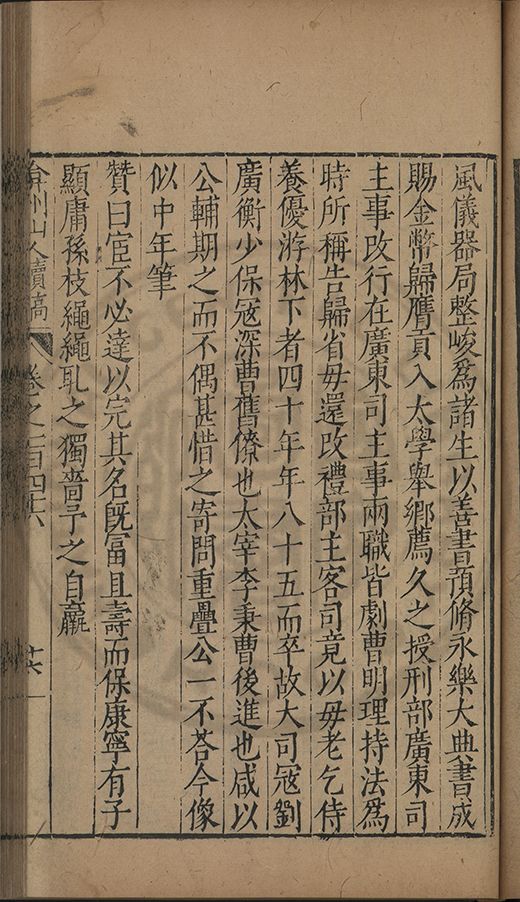 風儀器局整峻爲諸生以善書預脩永樂大典書成
賜金幣歸膺貢入太學舉鄉薦久之授刑部廣東司
主事改行在廣東司主事兩職皆劇曹明理持法爲
時所稱告歸省毋還改禮部主客司竟以毋老乞侍
養優游林下者四十年年八十五而卒故大司寇劉
廣衡少保寇深曹舊僚也太宰李秉曹後進也咸以
公輔期之而不偶甚惜之寄問重疊公一不荅今像
似中年筆
贊曰宦不必達以完其名旣冨且壽而保康寧有子
顯庸孫枝繩繩耴之獨嗇予之自贏
弇州山人續稿 卷之一百四十六 十六